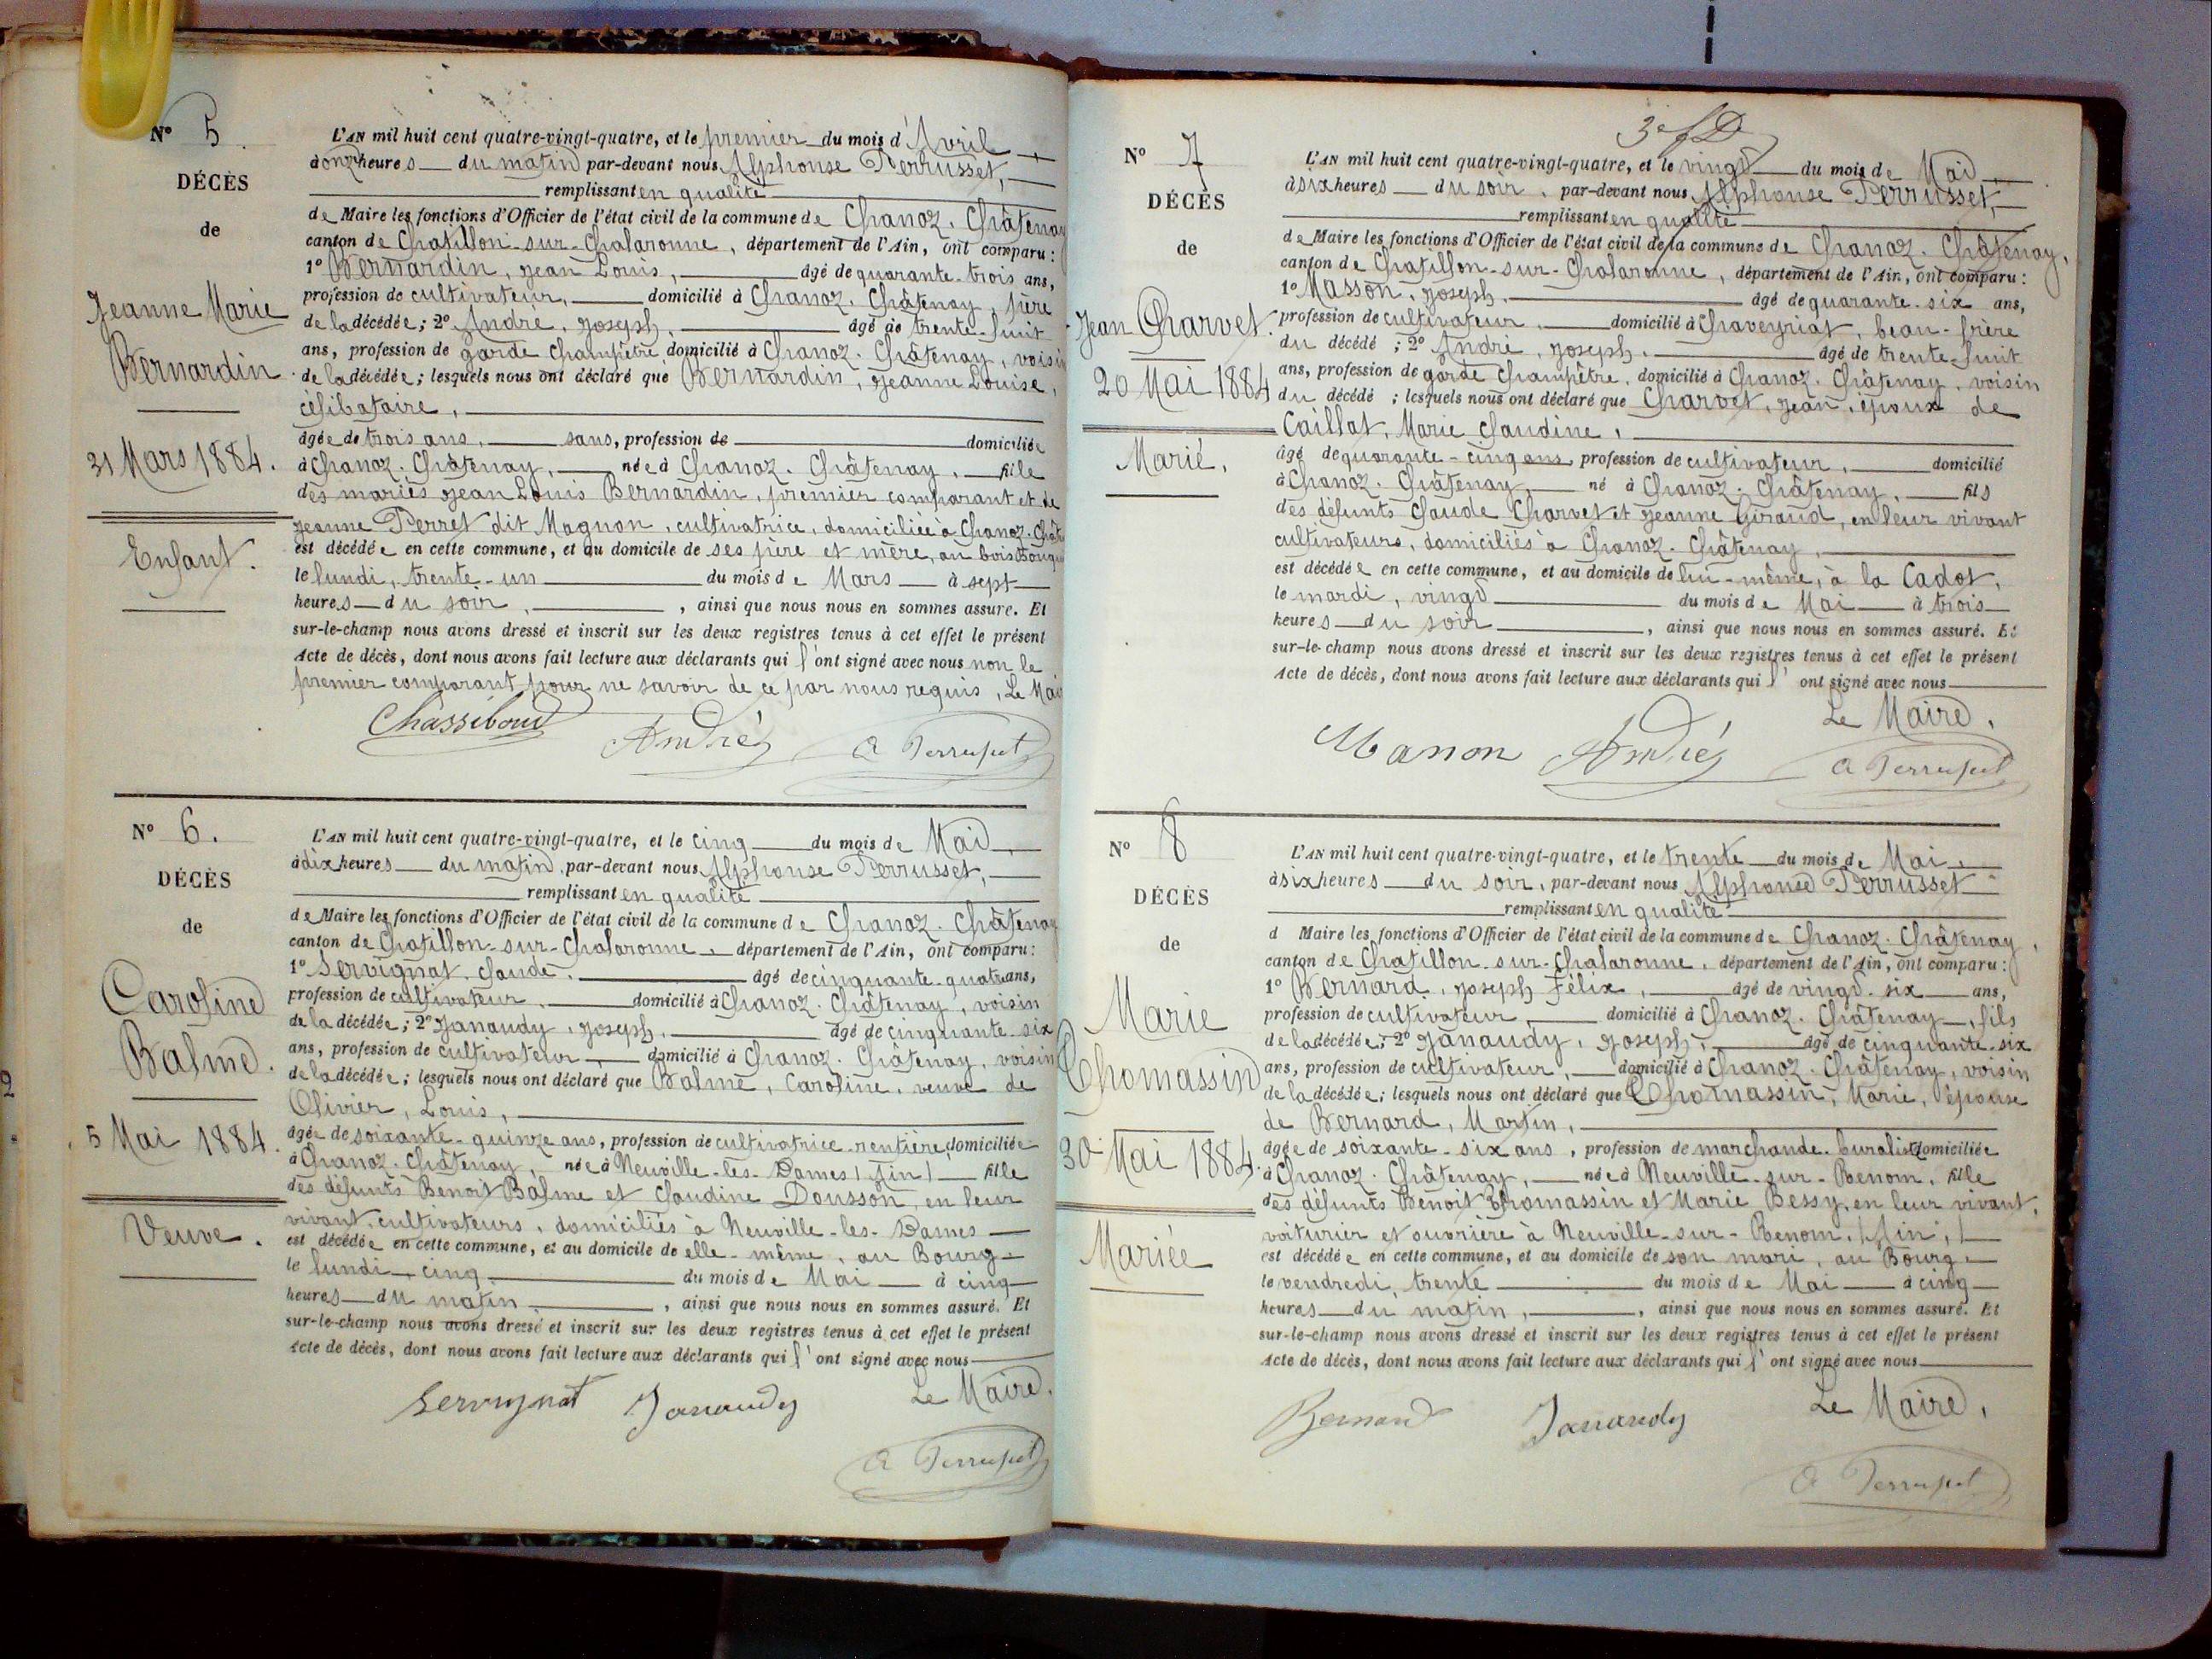 N° 5.
DÉCÈS
de
Jeanne Marie
Bernardin.
31 Mars 1884.
Enfant.
L'AN mil huit cent quatre-vingt-quatre, et le premier du mois d'Avril
à onze heures du matin par-devant nous Alphonse Perrusset,
remplissant en qualité
de Maire les fonctions d'Officier de l'état civil de la commune de Chanoz-Châtenay
canton de Chatillon-sur-Chalaronne, département de l'Ain, ont comparu:
1° Bernardin, Jean Louis, âgé de quarante-trois ans,
profession de cultivateur, domicilié à Chanoz-Châtenay, père
de la décédée; 2° André, Joseph, âgé de trente-huit
ans, profession de garde champêtre, domicilié à Chanoz-Châtenay, voisin
de la décédée; lesquels nous ont déclaré que Bernardin, Jeanne Louise,
célibataire,
âgée de trois ans, sans, profession de domiciliée
à Chanoz-Châtenay, née à Chanoz-Châtenay, fille
des mariés Jean Louis Bernardin, premier comparant et de
Jeanne Perret dit Magnon, cultivatrice, domiciliée à Chanoz-Chât
est décédée en cette commune, et au domicile de ses père et mère, au bois
le lundi, trente-un du mois de Mars à sept
heures du soir, ainsi que nous nous en sommes assuré. Et
sur-le-champ nous avons dressé et inscrit sur les deux registres tenus à cet effet le présent
Acte de décès, dont nous avons fait lecture aux déclarants qui l'ont signé avec nous non le
premier comparant pour ne savoir de ce par nous requis, Le Mai
Chassiboud André A Perrusset
N° 6.
DÉCÈS
de
Caroline
Balme.
5 Mai 1884.
Veuve.
L'AN mil huit cent quatre-vingt-quatre, et le cinq du mois de Mai
à dix heures du matin, par-devant nous Alphonse Perrusset,
remplissant en qualité
de Maire les fonctions d'Officier de l'état civil de la commune de Chanoz-Châtenay
canton de Chatillon-sur-Chalaronne, département de l'Ain, ont comparu:
1° Servignat, Claude, âgé de cinquante-quatre ans,
profession de cultivateur, domicilié à Chanoz-Châtenay, voisin
de la décédée; 2° Janaudy, Joseph, âgé de cinquante-six
ans, profession de cultivateur domicilié à Chanoz-Châtenay, voisin
de la décédée; lesquels nous ont déclaré que Balme, Caroline, veuve de
Olivier, Louis,
âgée de soixante-quinze ans, profession de cultivatrice-rentière, domiciliée
à Chanoz-Châtenay, née à Neuville-les-Dames (Ain) fille
des défunts Benoit Balme et Claudine Dousson, en leur
vivant, cultivateurs, domiciliés à Neuville-les-Dames
est décédée en cette commune, et au domicile de elle-même, au Bourg
le lundi cinq du mois de Mai à cinq
heures du matin, ainsi que nous nous en sommes assuré. Et
sur-le-champ nous avons dressé et inscrit sur les deux registres tenus à cet effet le présent
Acte de décès, dont nous avons fait lecture aux déclarants qui l'ont signé avec nous
Le Maire.
Servignat Janaudy
A Perrusset
N° 7
DÉCÈS
de
Jean Charvet.
20 Mai 1884
Marié.
L'AN mil huit cent quatre-vingt-quatre, et le vingt du mois de Mai
à six heures du soir, par-devant nous Alphonse Perrusset,
remplissant en qualité
de Maire les fonctions d'Officier de l'état civil de la commune de Chanoz-Châtenay,
canton de Chatillon-sur-Chalaronne, département de l'Ain, ont comparu:
1° Masson, Joseph, âgé de quarante-six ans,
profession de cultivateur, domicilié à Chaveyriat, beau-frère
du décédé; 2° André, Joseph, âgé de trente-huit
ans, profession de garde champêtre, domicilié à Chanoz-Châtenay, voisin
du décédé; lesquels nous ont déclaré que Charvet, Jean, époux de
Caillat, Marie Claudine,
âgé de quarante-cinq ans, profession de cultivateur, domicilié
à Chanoz-Châtenay, né à Chanoz-Châtenay, fils
des défunts Claude Charvet et Jeanne Giraud, en leur vivant
cultivateurs, domiciliés à Chanoz-Châtenay,
est décédé en cette commune, et au domicile de lui-même, à la Cadot,
le mardi, vingt du mois de Mai à trois
heures du soir, ainsi que nous nous en sommes assuré. Et
sur-le-champ nous avons dressé et inscrit sur les deux registres tenus à cet effet le présent
Acte de décès, dont nous avons fait lecture aux déclarants qui l'ont signé avec nous
Le Maire.
Masson André A Perrusset
N° 8
DÉCÈS
de
Marie
Thomassin
30 Mai 1884.
Mariée
L'AN mil huit cent quatre-vingt-quatre, et le trente du mois de Mai
à six heures du soir, par-devant nous Alphonse Perrusset
remplissant en qualité
d Maire les fonctions d'Officier de l'état civil de la commune de Chanoz-Châtenay,
canton de Chatillon-sur-Chalaronne, département de l'Ain, ont comparu:
1° Bernard, Joseph Félix, âgé de vingt-six ans,
profession de cultivateur, domicilié à Chanoz-Châtenay, fils
de la décédée; 2° Janaudy, Joseph, âgé de cinquante-six
ans, profession de cultivateur, domicilié à Chanoz-Châtenay, voisin
de la décédée; lesquels nous ont déclaré que Thomassin, Marie, épouse
de Bernard, Martin,
âgée de soixante-six ans, profession de marchande-buraliste domiciliée
à Chanoz-Châtenay, née à Neuville-sur-Renom, fille
des défunts Benoit Thomassin et Marie Bessy, en leur vivant,
voiturier et ouvrière à Neuville-sur-Renom, (Ain,)
est décédée en cette commune, et au domicile de son mari, au Bourg
le vendredi, trente du mois de Mai à cinq
heures du matin, ainsi que nous nous en sommes assuré. Et
sur-le-champ nous avons dressé et inscrit sur les deux registres tenus à cet effet le présent
Acte de décès, dont nous avons fait lecture aux déclarants qui l'ont signé avec nous
Le Maire,
Bernard Janaudy
A Perrusset